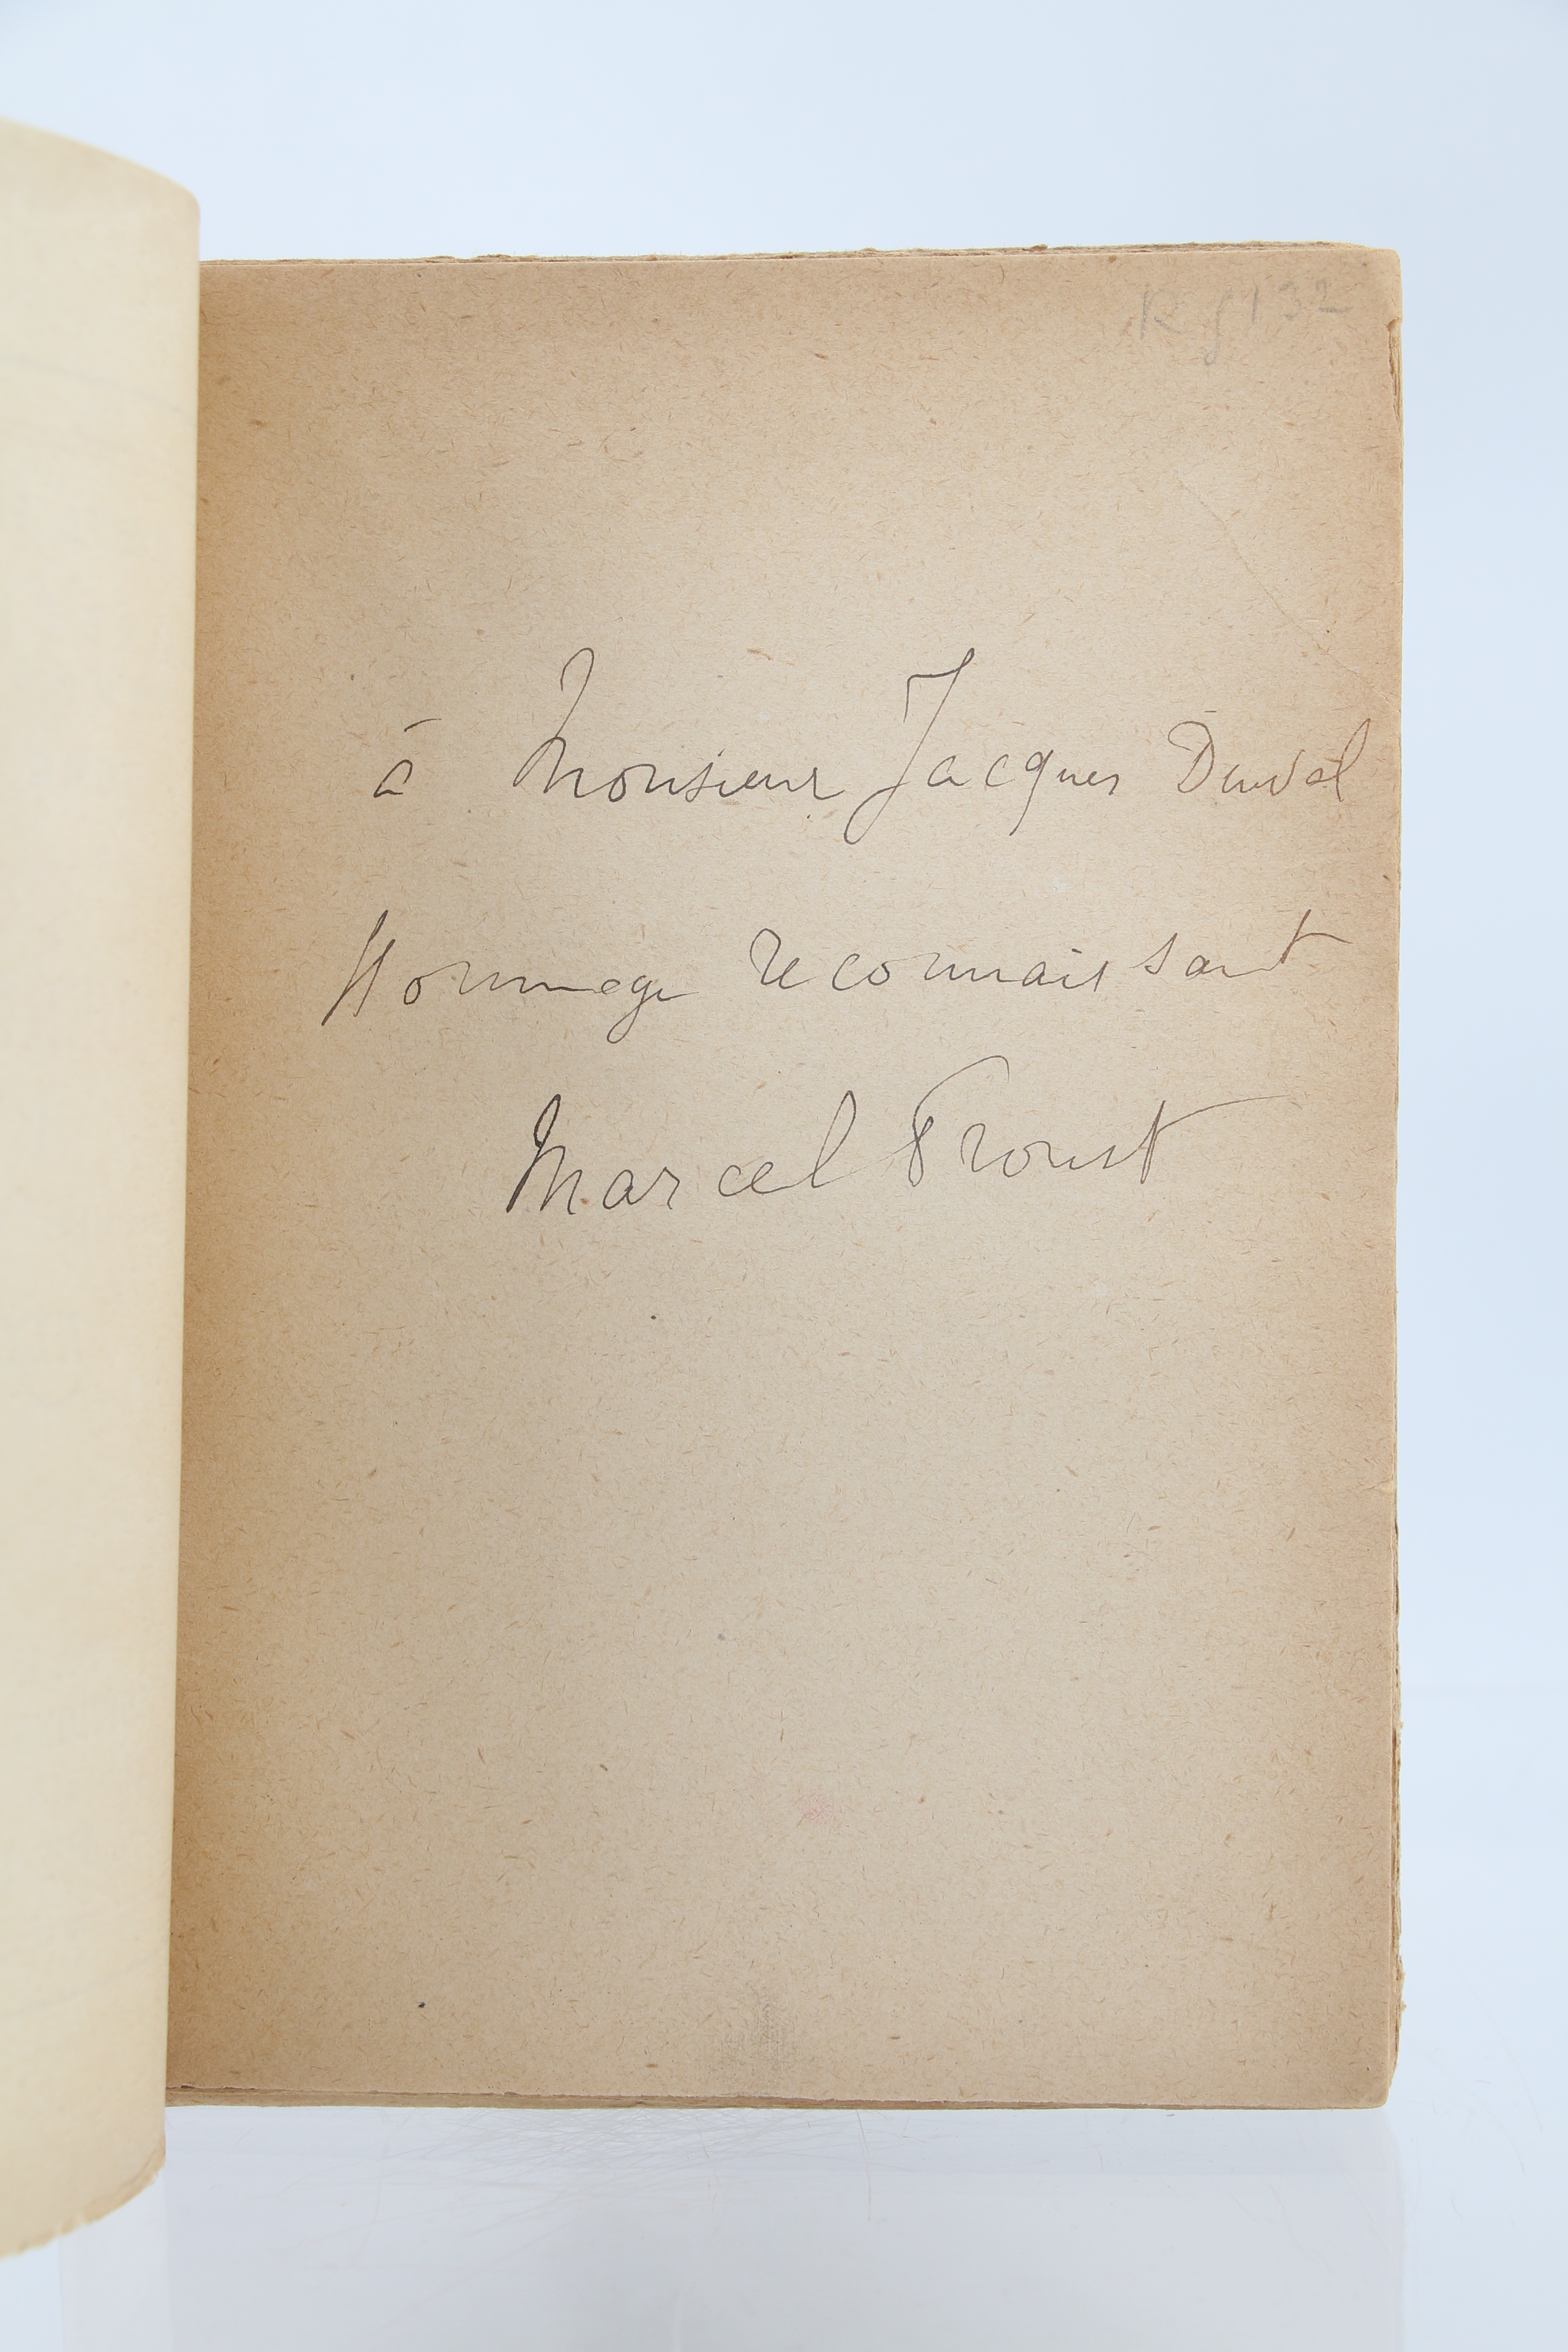 à Monsieur Jacques
Hommage reconnaissant
Marcel Proust